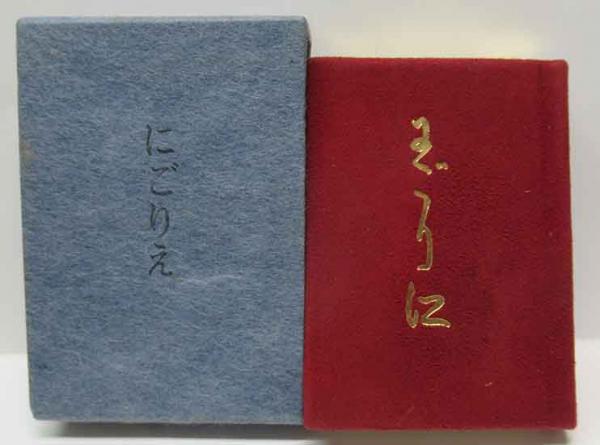 にごりえ
にごり江